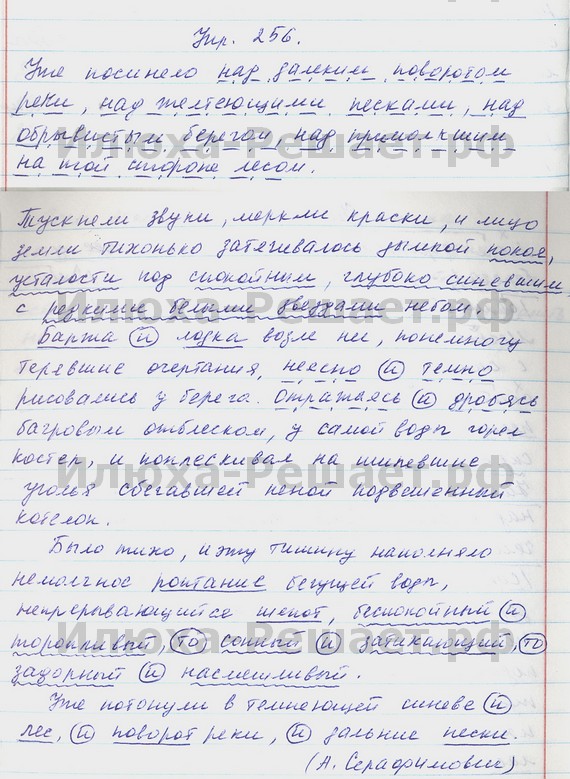 Упр. 256.
Уже посинело над далеким поворотом
реки, над желтеющими песками, над
обрывистым берегом, над примолкшим
Илюха-Решает.рф
на той стороне лесом.
Тускнели звуки, меркли краски, и лицо
земли тихонько затягивалось дымкой покоя,
усталости под спокойным, глубоко синевшим
Илюха-Решает.рф
с редкими белыми звездами небом.
Баржа и лодка возле ни, понемногу
терявшие очертания, неясно и темно
рисовались у берега. Отражаясь и дробясь
багровым отблеском, у самой воды горел
костер, и поплескивал на шипевшие
Илюха-Решает.рф
уголья сбегавшей пеной подвешенный
котелок.
Было тихо, и эту тишину наполняло
немолчное роптание бегущей воды,
непрерывающийся шепот, беспокойный и
торопливый, то сонный и затихающий, то
Илюха-Решает.рф
задорный и насмешливый.
Уже потонули в темнеющей синеве и
лес, и поворот реки, и дальние пески.
(А. Серафимович)